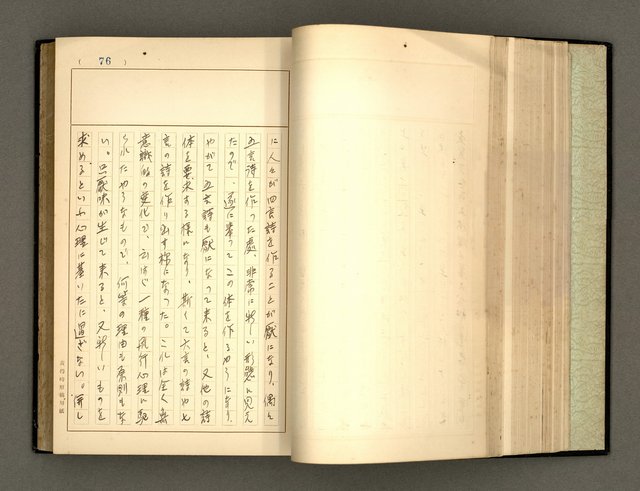 ( 76 )
に人々が四言詩を作ることが厭になり、偶々
五言詩を作った処、非常に新しい形態に見え
たので、遂に挙ってこの体を作るやうになり、
やがて五言詩も厭になって来ると、又他の詩
体を要求する様になり、斯くて六言の詩や七
言の詩を作り出す様になった。これは全く無
意識的の変化で、云はゞ一種の流行心理に駆
られたやうなもので、何等の理由も原則もな
い。只厭味が生じて来ると、又新しいものを
求めるといふ心理に基いたに過ぎない。併し
黃得時原稿用紙